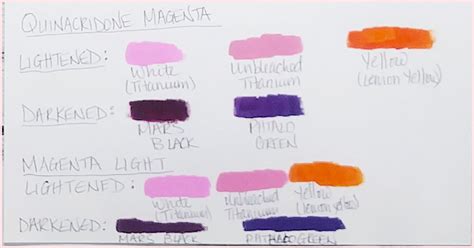 QUINACRIDONE MAGENTA
LIGHTENED:
White (Titanium)
Unbleached Titanium
Yellow (Lemon Yellow)
DARKENED:
MARS BLACK
PHTALO GREEN
MAGENTA LIGHT
LIGHTENED:
White (Titanium)
Unbleached Titanium
Yellow (Lemon yellow)
DARKENED:
MARS BLACK
PHTHALO GREEN